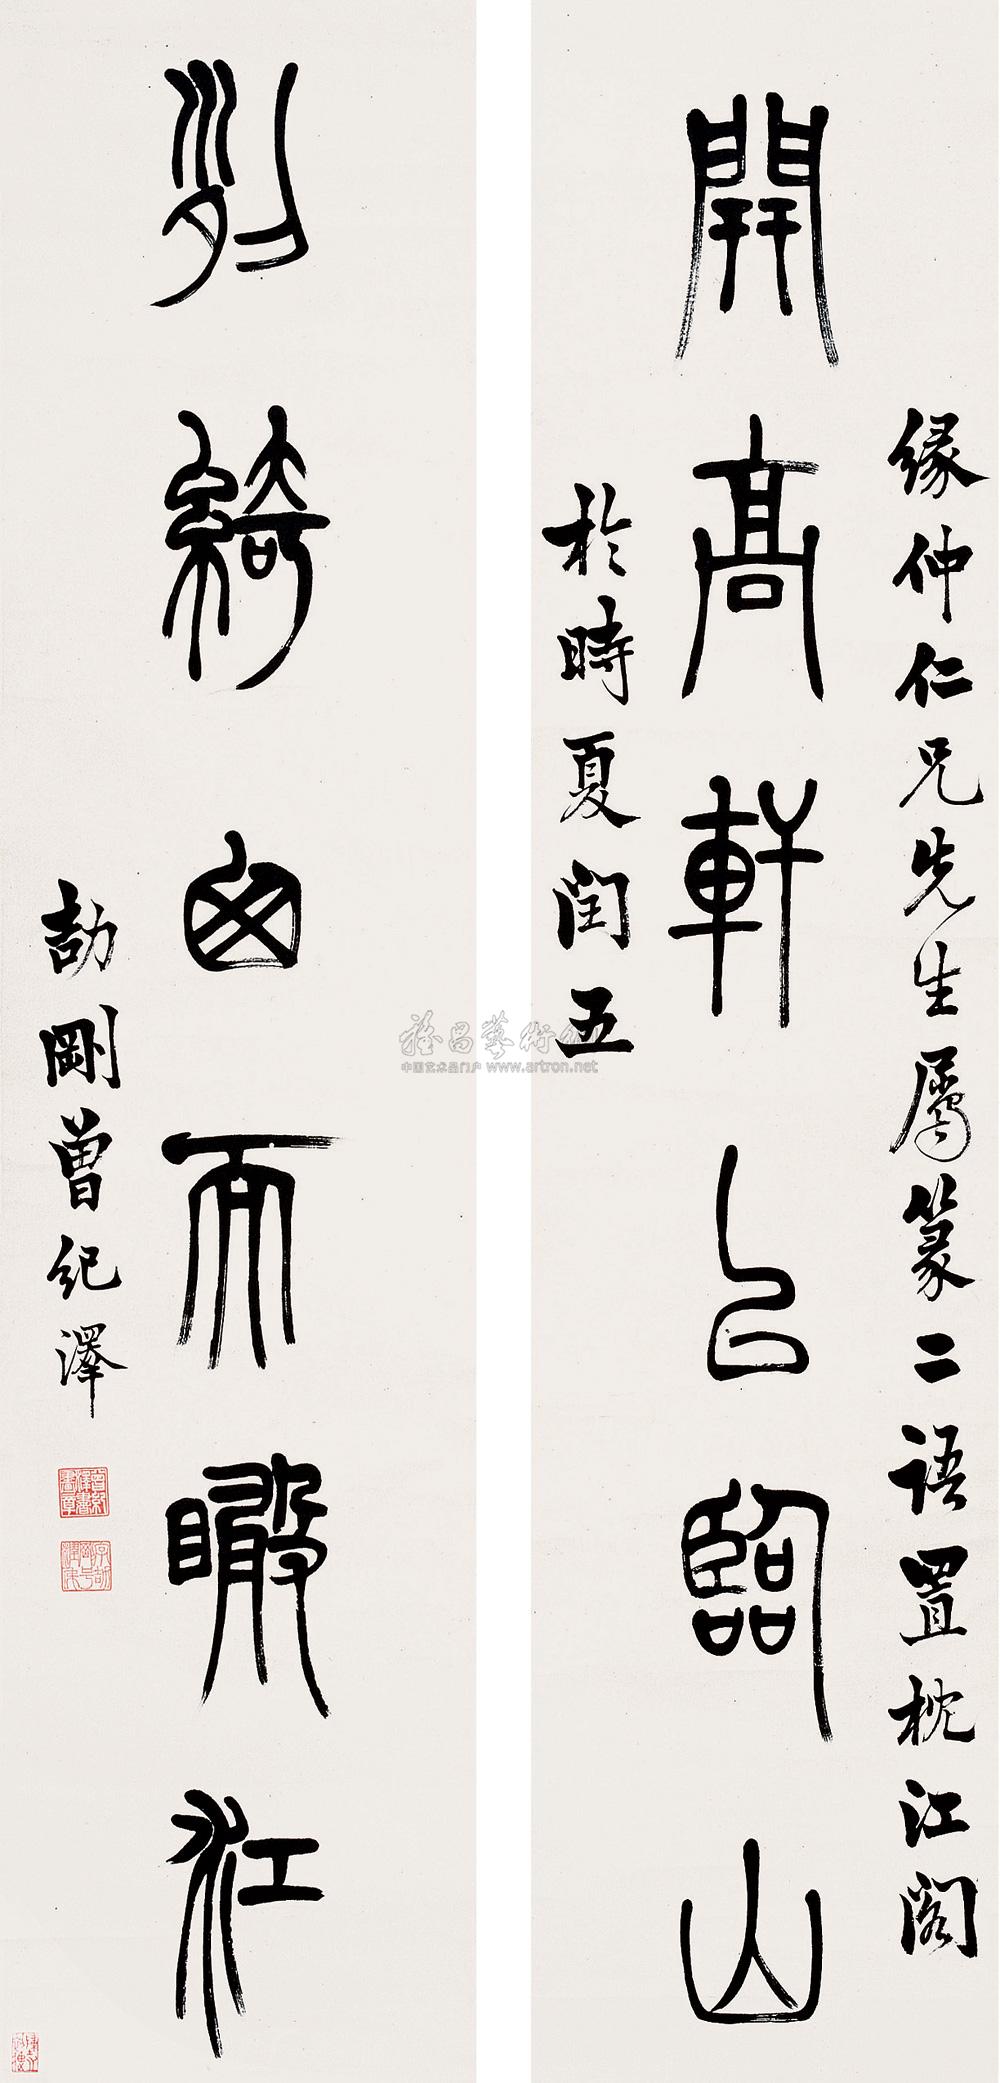 緣仲仁兄先生屬篆二語置枕江閣
開高軒㠯臨山
於時夏閏五
列綺囱而瞰江
劼剛曾紀澤
雅昌藝術網
中国艺术品门户 www.artron.net